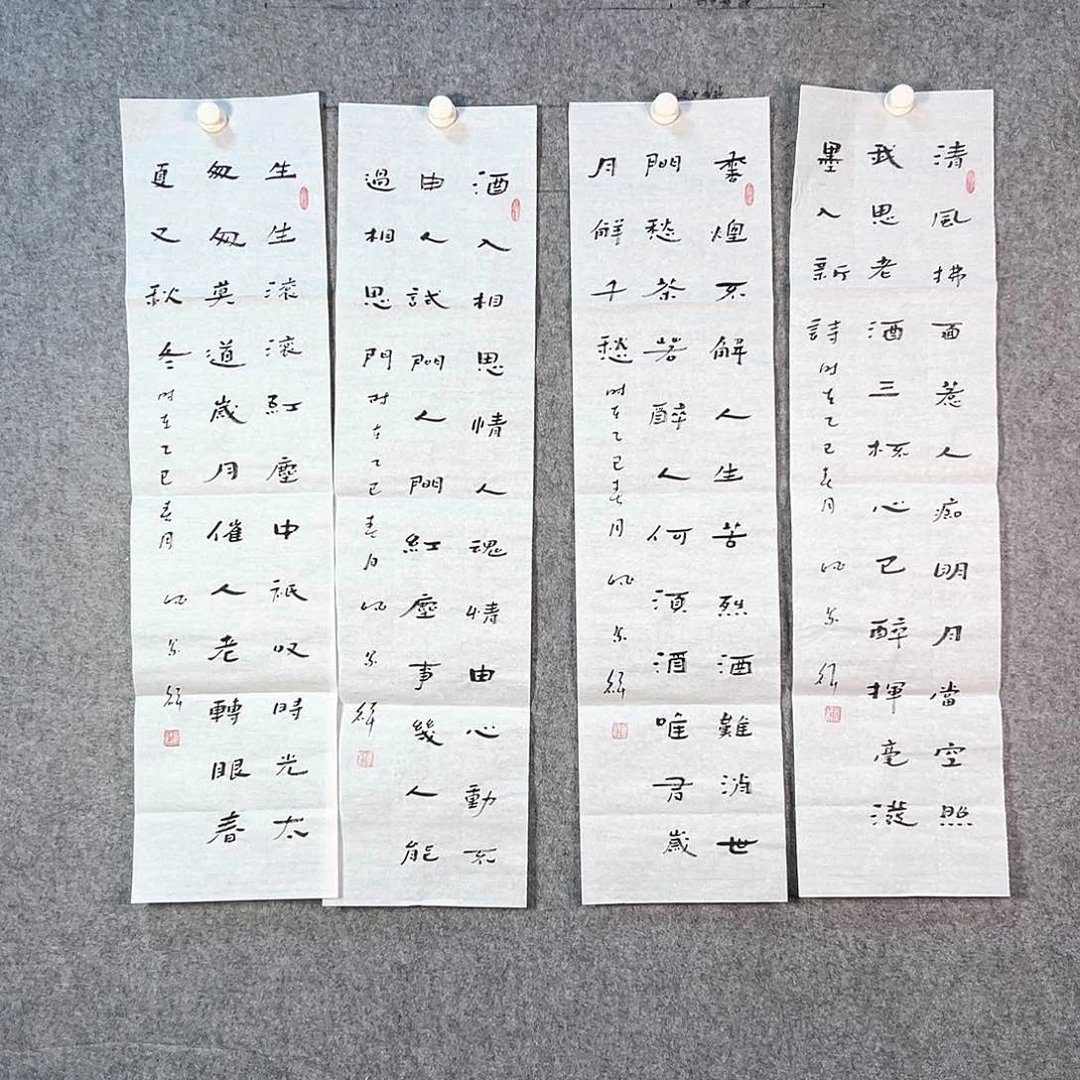 清風拂面惹人痴明月當空照
我思老酒三杯心已醉揮毫潑
墨入新詩 时在乙巳春月
煌不解人生苦烈酒難消世
間愁茶苦醉人何須酒唯君歲
月解千愁 时在乙巳春月
酒入相思情人魂情由心動不
由人試問人間紅塵事幾人能
過相思門 时在乙巳春月
生生滾滾紅塵中祇叹時光太
匆匆莫道歲月催人老轉眼春
夏又秋冬 时在乙巳春月